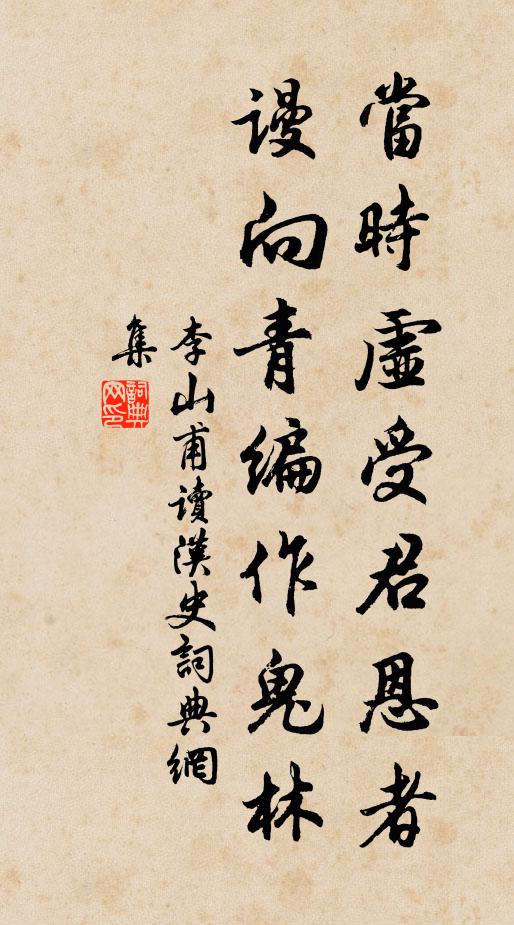 當時虛受君恩者
謾向青編作鬼林
李山甫讀漢史詞典網
集
詞典网印